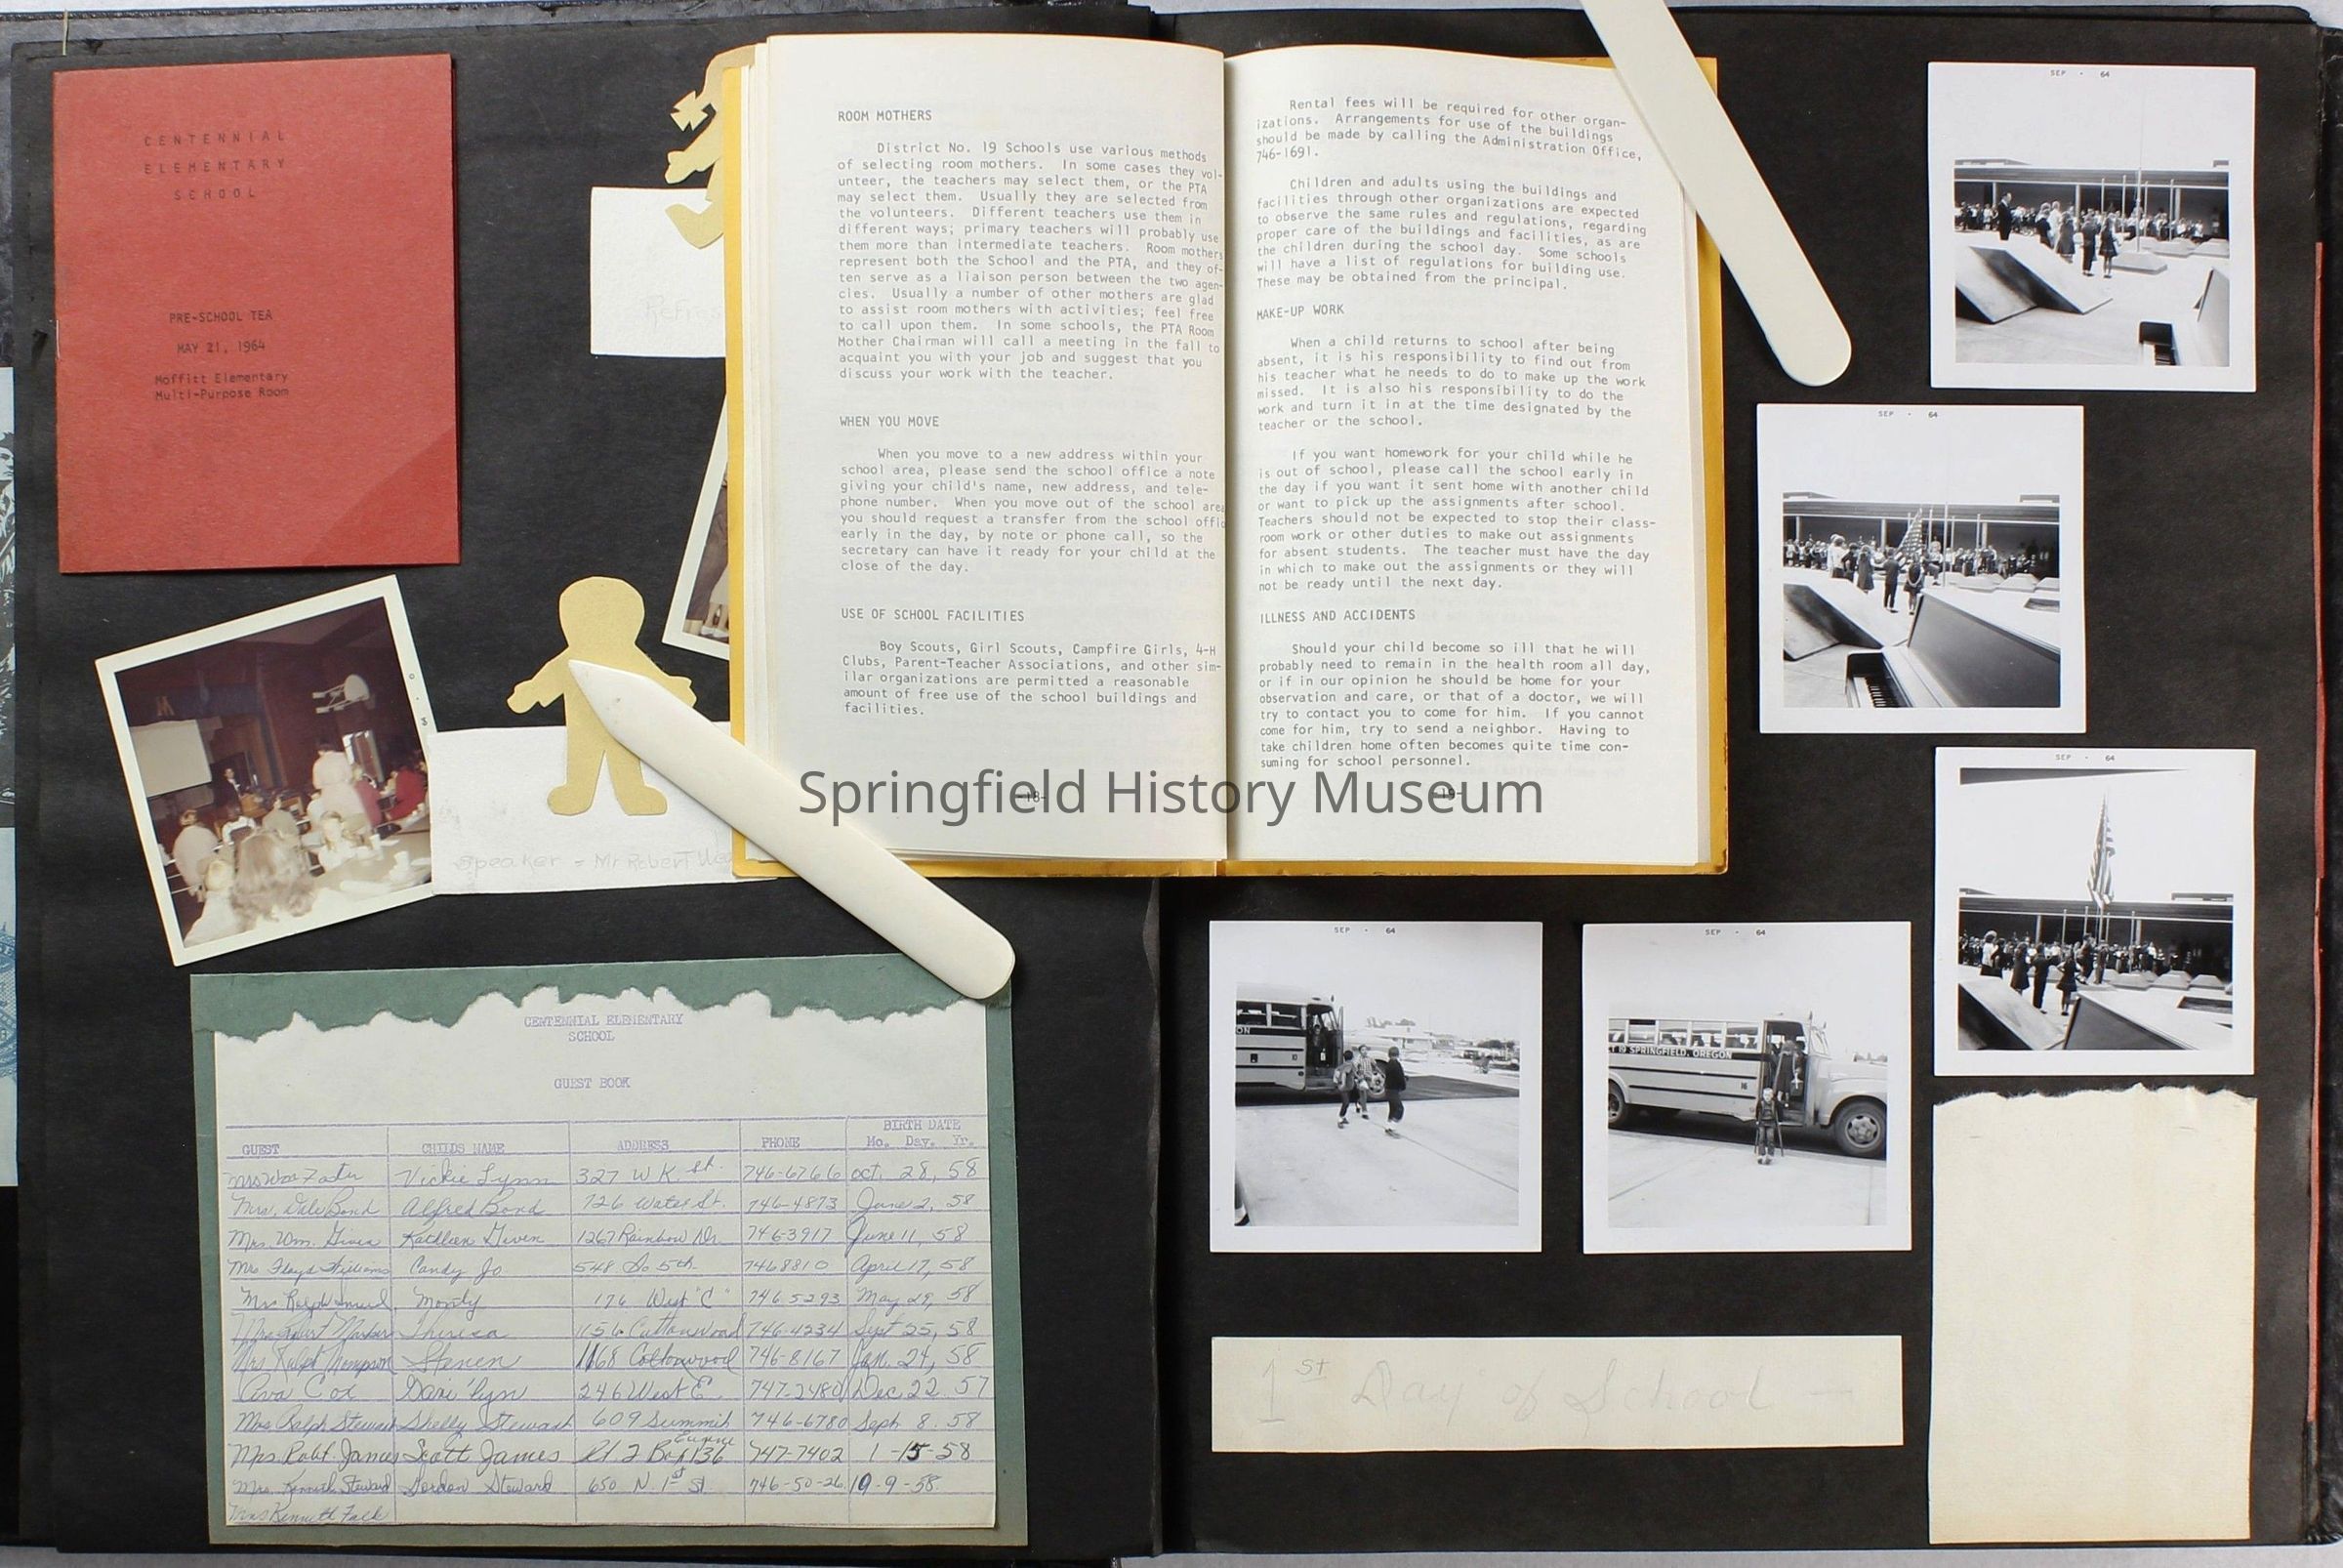 CENTENNIAL
ELEMENTARY
SCHOOL
PRE-SCHOOL TEA
MAY 21, 1964
Moffitt Elementary
Multi-Purpose Room
Refres
ROOM MOTHERS
District No. 19 Schools use various methods
of selecting room mothers. In some cases they vol-
unteer, the teachers may select them, or the PTA
may select them. Usually they are selected from
the volunteers. Different teachers use them in
different ways; primary teachers will probably use
them more than intermediate teachers. Room mothers
represent both the School and the PTA, and they of-
ten serve as a liaison person between the two agen-
cies. Usually a number of other mothers are glad
to assist room mothers with activities; feel free
to call upon them. In some schools, the PTA Room
Mother Chairman will call a meeting in the fall to
acquaint you with your job and suggest that you
discuss your work with the teacher.
WHEN YOU MOVE
When you move to a new address within your
school area, please send the school office a note
giving your child's name, new address, and tele-
phone number. When you move out of the school area
you should request a transfer from the school offic
early in the day, by note or phone call, so the
secretary can have it ready for your child at the
close of the day.
USE OF SCHOOL FACILITIES
Boy Scouts, Girl Scouts, Campfire Girls, 4-H
Clubs, Parent-Teacher Associations, and other sim-
ilar organizations are permitted a reasonable
amount of free use of the school buildings and
facilities.
-18-
Rental fees will be required for other organ-
izations. Arrangements for use of the buildings
should be made by calling the Administration Office,
746-1691.
Children and adults using the buildings and
facilities through other organizations are expected
to observe the same rules and regulations, regarding
proper care of the buildings and facilities, as are
the children during the school day. Some schools
will have a list of regulations for building use.
These may be obtained from the principal.
MAKE-UP WORK
When a child returns to school after being
absent, it is his responsibility to find out from
his teacher what he needs to do to make up the work
missed. It is also his responsibility to do the
work and turn it in at the time designated by the
teacher or the school.
If you want homework for your child while he
is out of school, please call the school early in
the day if you want it sent home with another child
or want to pick up the assignments after school.
Teachers should not be expected to stop their class-
room work or other duties to make out assignments
for absent students. The teacher must have the day
in which to make out the assignments or they will
not be ready until the next day.
ILLNESS AND ACCIDENTS
Should your child become so ill that he will
probably need to remain in the health room all day,
or if in our opinion he should be home for your
observation and care, or that of a doctor, we will
try to contact you to come for him. If you cannot
come for him, try to send a neighbor. Having to
take children home often becomes quite time con-
suming for school personnel.
-19-
Springfield History Museum
Speaker - Mr Robert
SEP · 64
SEP · 64
SEP · 64
SEP · 64
SEP · 64
ON
T 19 SPRINGFIELD, OREGON
16
1st Day of School —
CENTENNIAL ELEMENTARY
SCHOOL
GUEST BOOK
BIRTH DATE
GUEST CHILDS NAME ADDRESS PHONE Mo. Day. Yr.
Vickie Lynn 327 W K. St. 746-6766 Oct. 28, 58
Mrs. Dale Bond Alfred Bond 726 Water St. 746-4873 June 2, 58
Mrs. Wm. Given Kathleen Given 1267 Rainbow Dr. 746-3917 June 11, 58
Mrs Floyd Williams Candy Jo 548 So 5th. 7468810 April 17, 58
Mrs Ralph Monty 176 West "C" 746 5293 May 29, 58
Mrs Theresa 1156 Cottonwood 746-4234 Sept 25, 58
Mrs Ralph Thompson Steven 1168 Cottonwood 746-8167 Jan. 24, 58
Ava Cox 246 West E 747-2480 Dec 22 57
Mrs Ralph Stewart Shelly Stewart 609 Summit 746-6780 Sept 8. 58
Mrs Robt. James Scott James Rt 2 Box 136 Eugene 747-7402 1-15-58
Mrs. Kenneth Steward Gordon Steward 650 N. 1st St 746-50-26 10-9-58
Mrs Kenneth Falk